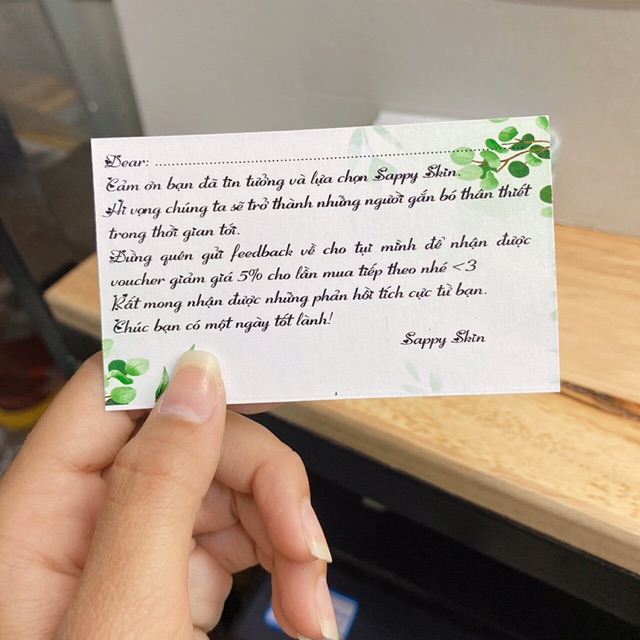 Dear: ........................................................................................
Cảm ơn bạn đã tin tưởng và lựa chọn Sappy Skin.
Hi vọng chúng ta sẽ trở thành những người gắn bó thân thiết
trong thời gian tới.
Đừng quên gửi feedback về cho tụi mình để nhận được
voucher giảm giá 5% cho lần mua tiếp theo nhé <3
Rất mong nhận được những phản hồi tích cực từ bạn.
Chúc bạn có một ngày tốt lành!
Sappy Skin